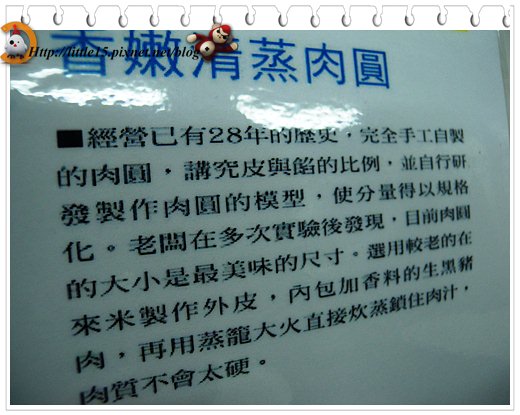 Http://little15.pixnet.net/blog
香嫩清蒸肉圓
■經營已有28年的歷史，完全手工自製
的肉圓，講究皮與餡的比例，並自行研
發製作肉圓的模型，使分量得以規格
化。老闆在多次實驗後發現，目前肉圓
的大小是最美味的尺寸。選用較老的在
來米製作外皮，內包加香料的生黑豬
肉，再用蒸籠大火直接炊蒸鎖住肉汁，
肉質不會太硬。